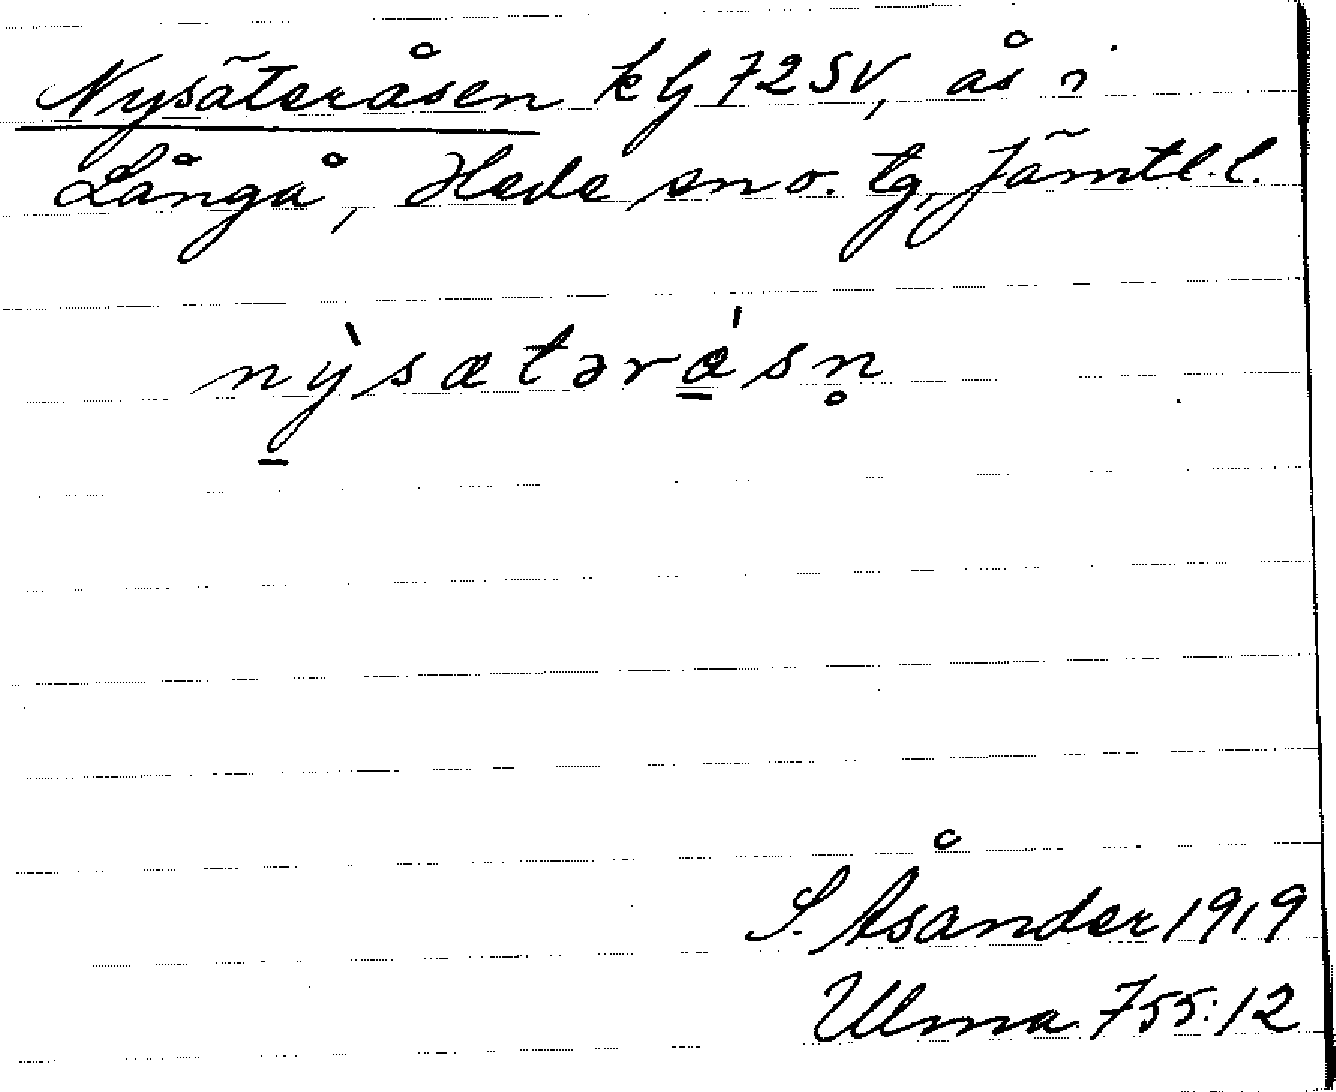 Nysäteråsen kfj 72 SV, ås i
Långå, Hede sn o. tg, Jämtl. l.
nỳsætərásn̥
S. Åsander 1919
Ulma 755:12